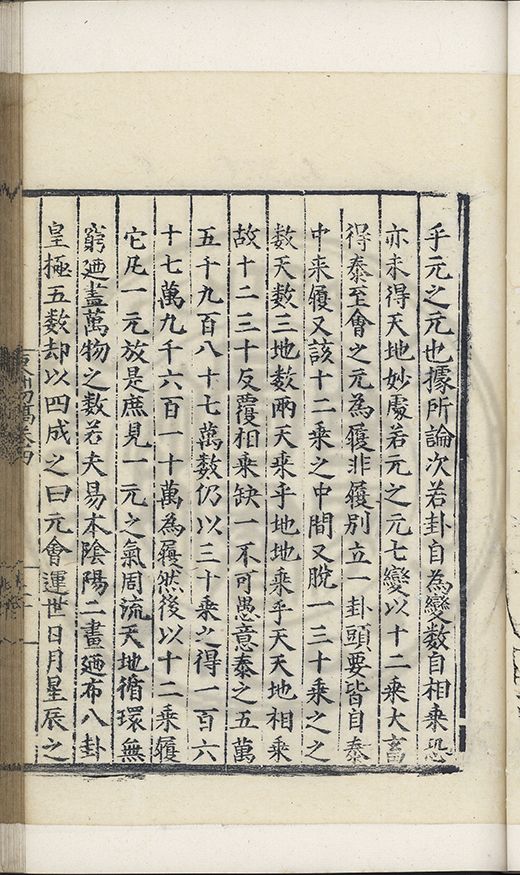 乎元之元也據所論次若卦自為變數自相乘恐
亦未得天地妙處若元之元七變以十二乘大畜
得泰至會之元為履非履別立一卦頭要皆自泰
中来履又該十二乘之中間又脫一三十乘之之
數天數三地數兩天乘乎地地乘乎天天地相乘
故十二三十反覆相乘缺一不可愚意泰之五萬
五千九百八十七萬數仍以三十乘之得一百六
十七萬九千六百一十萬為履然後以十二乘履
它凡一元放是庶見一元之氣周流天地循環無
窮廼盖萬物之數若夫易本陰陽二畫廼布八卦
皇極五數却以四成之曰元會運世日月星辰之